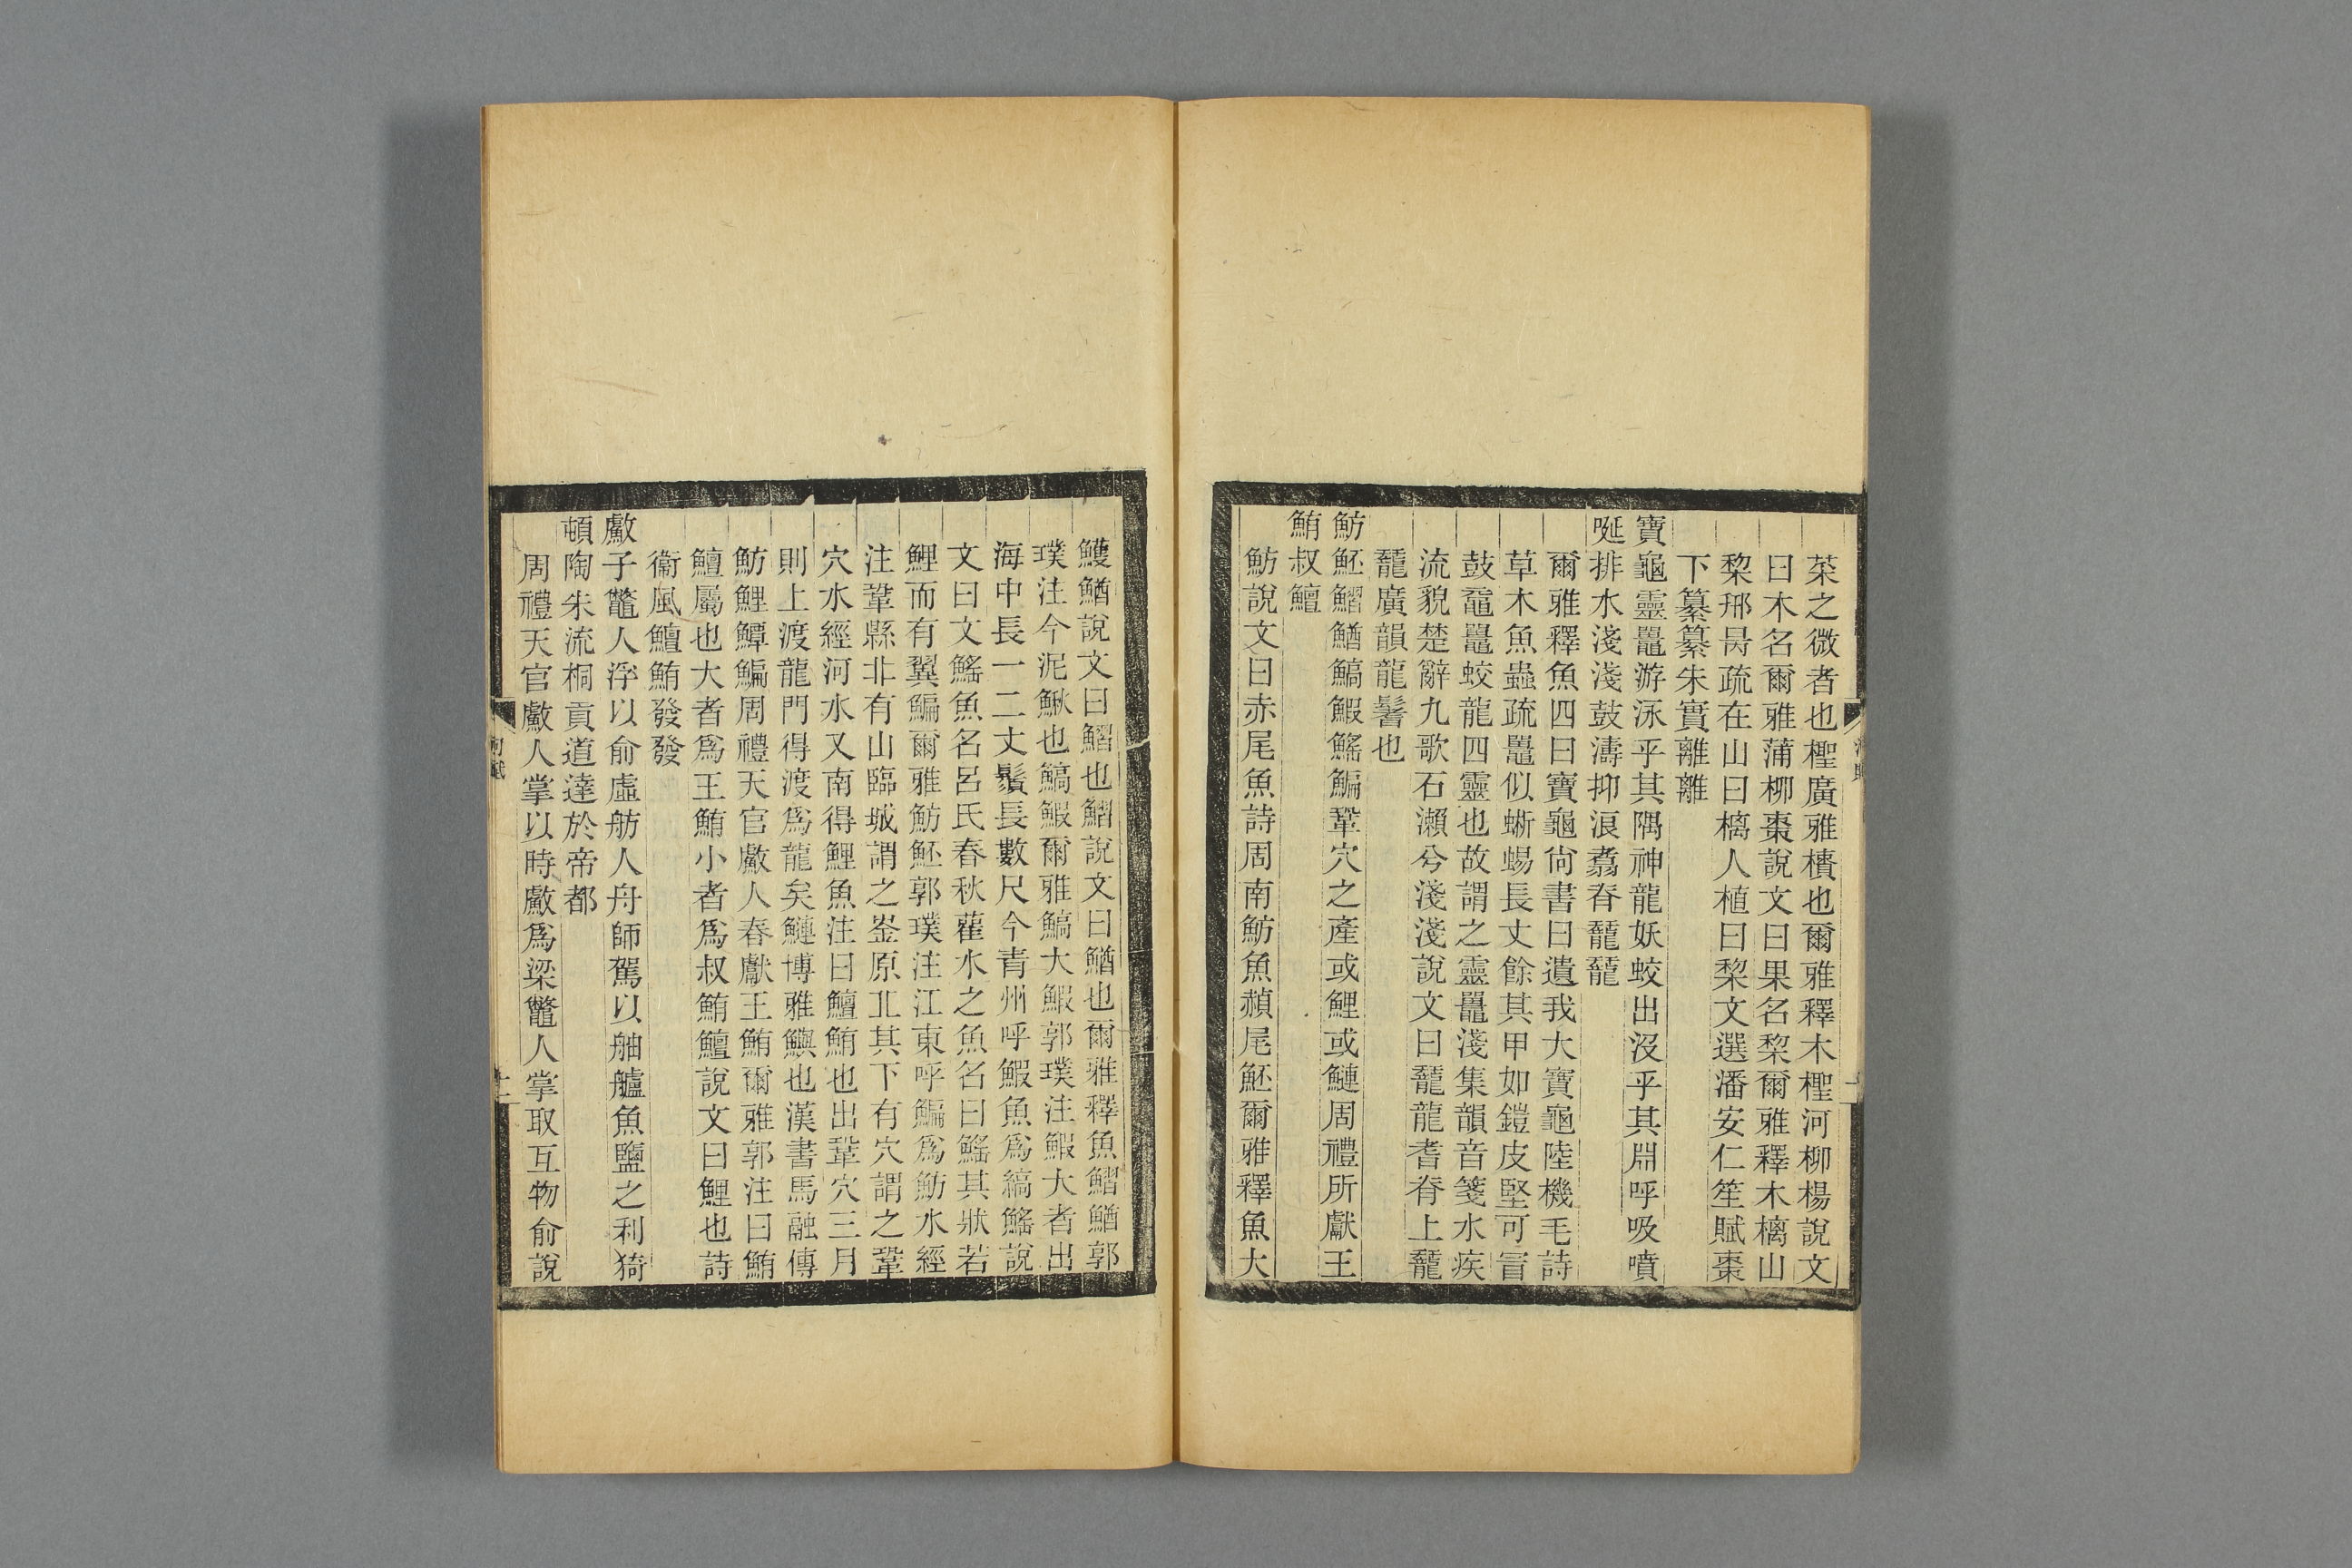 菜之微者也檉廣雅檟也爾雅釋木檉河柳楊說文
曰木名爾雅蒲柳棗說文曰果名棃爾雅釋木樆山
棃邢昺疏在山曰樆人植曰棃文選潘安仁笙賦棗
下纂纂朱實離離
寶龜靈鼉游泳乎其隅神龍妖蛟出沒乎其淵呼吸噴
唌排水淺淺鼓濤抑浪翥脊龗龗
爾雅釋魚四曰寶龜尙書曰遺我大寶龜陸機毛詩
草木魚蟲疏鼉似蜥蜴長丈餘其甲如鎧皮堅可冒
鼓黿鼉蛟龍四靈也故謂之靈鼉淺集韻音箋水疾
流貌楚辭九歌石瀨兮淺淺說文曰龗龍耆脊上龗
龗廣韻龍鬐也
魴魾鰼鰌鰝鰕鰩鯿鞏穴之產或鯉或鰱周禮所獻王
鮪叔鱣
魴說文曰赤尾魚詩周南魴魚赬尾魾爾雅釋魚大
鱯鰌說文曰鰼也鰼說文曰鰌也爾雅釋魚鰼鰌郭
璞注今泥鰍也鰝鰕爾雅鰝大鰕郭璞注鰕大者出
海中長一二丈鬚長數尺今青州呼鰕魚爲鰝鰩說
文曰文鰩魚名呂氏春秋雚水之魚名曰鰩其狀若
鯉而有翼鯿爾雅魴魾郭璞注江東呼鯿爲魴水經
注鞏縣北有山臨城謂之崟原丘其下有穴謂之鞏
穴水經河水又南得鯉魚注曰鱣鮪也出鞏穴三月
則上渡龍門得渡爲龍矣鰱博雅鱮也漢書馬融傳
魴鯉鱏鯿周禮天官䱷人春獻王鮪爾雅郭注曰鮪
鱣屬也大者爲王鮪小者爲叔鮪鱣說文曰鯉也詩
衞風鱣鮪發發
䱷子鼈人浮以俞虛舫人舟師駕以舳艫魚鹽之利猗
頓陶朱流桐貢道達於帝都
周禮天官䱷人掌以時䱷爲梁鼈人掌取互物俞說